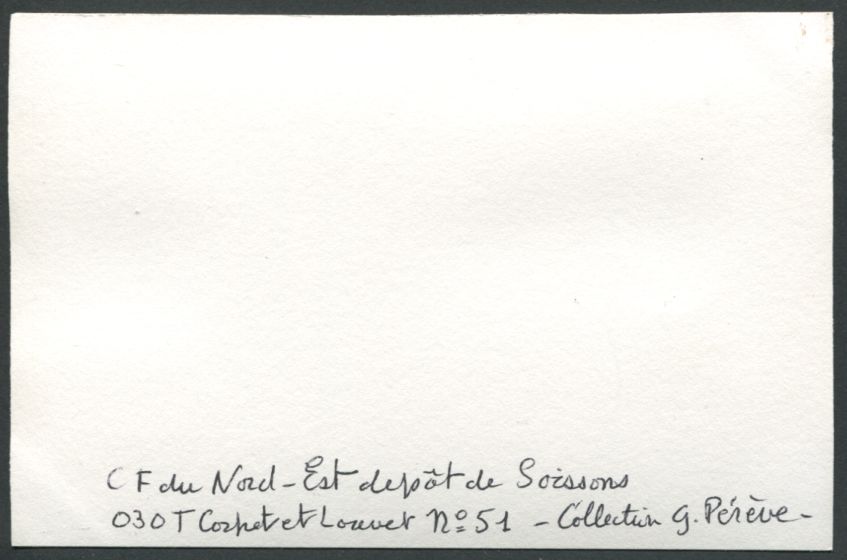 C F du Nord - Est depôt de Soissons
030 T Corpet et Louvet Nº 51 - Collection G. Pérève -